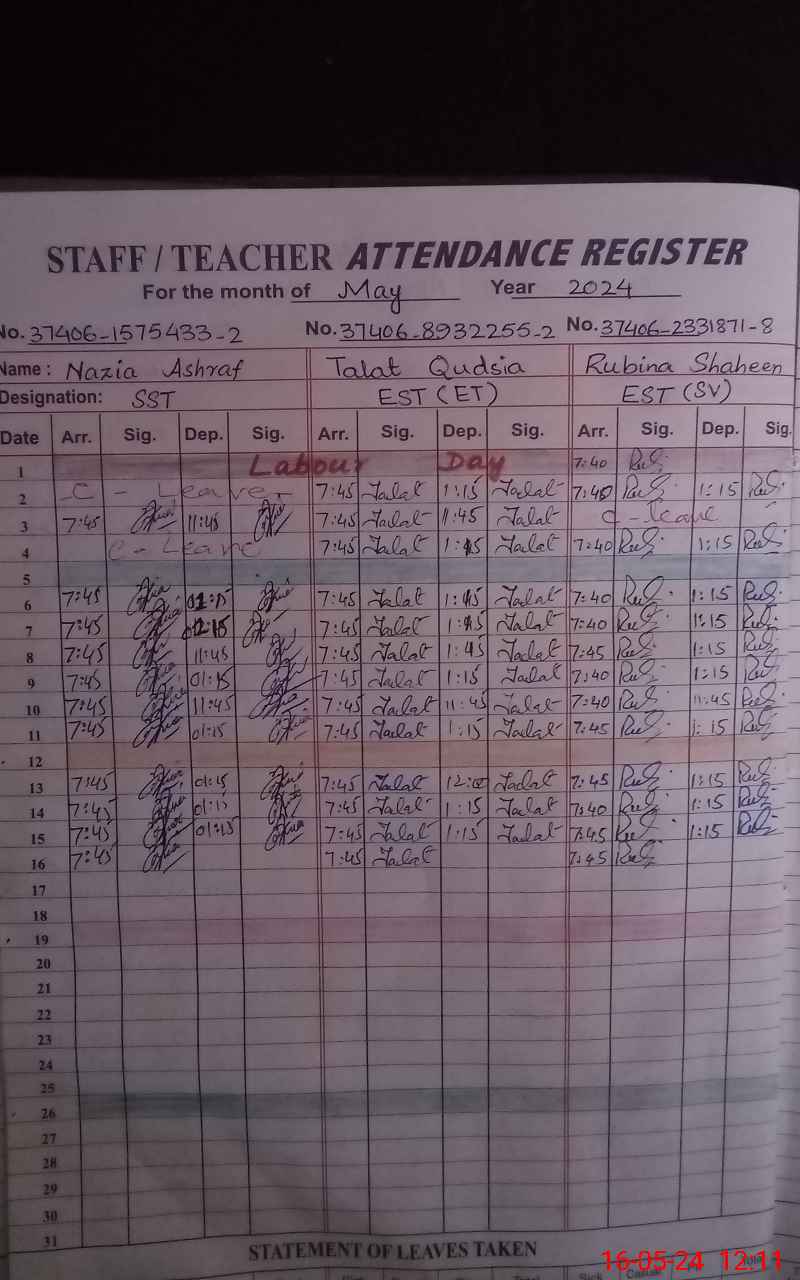 STAFF / TEACHER ATTENDANCE REGISTER
For the month of May Year 2024
No. 37406-1575433-2 No. 37406-8932255-2 No. 37406-2331871-8
Name: Nazia Ashraf Talat Qudsia Rubina Shaheen
Designation: SST EST (ET) EST (SV)
Date Arr. Sig. Dep. Sig. Arr. Sig. Dep. Sig. Arr. Sig. Dep. Sig.
1 Labour Day 7:40
2 C - Leave 7:45 Talat 1:15 Talat 7:40 1:15
3 7:45 11:45 7:45 Talat 11:45 Talat C - leave
4 C - Leave 7:45 Talat Talat 7:40 1:15
5
6 7:45 7:45 Talat Talat 7:40 1:15
7 7:45 7:45 Talat Talat 7:40 1:15
8 7:45 11:45 7:45 Talat Talat 7:45 1:15
9 7:45 01:15 7:45 Talat 1:15 Talat 7:40 1:15
10 7:45 11:45 7:45 Talat 11:45 Talat 7:40 11:45
11 7:45 01:15 7:45 Talat 1:15 Talat 7:45 1:15
12
13 7:45 01:15 7:45 Talat 12:00 Talat 7:45 1:15
14 7:45 01:15 7:45 Talat 1:15 Talat 7:40 1:15
15 7:45 01:15 7:45 Talat 1:15 Talat 7:45 1:15
16 7:45 7:45 Talat 7:45
17
18
19
20
21
22
23
24
25
26
27
28
29
30
31
STATEMENT OF LEAVES TAKEN
16-05-24 12:11